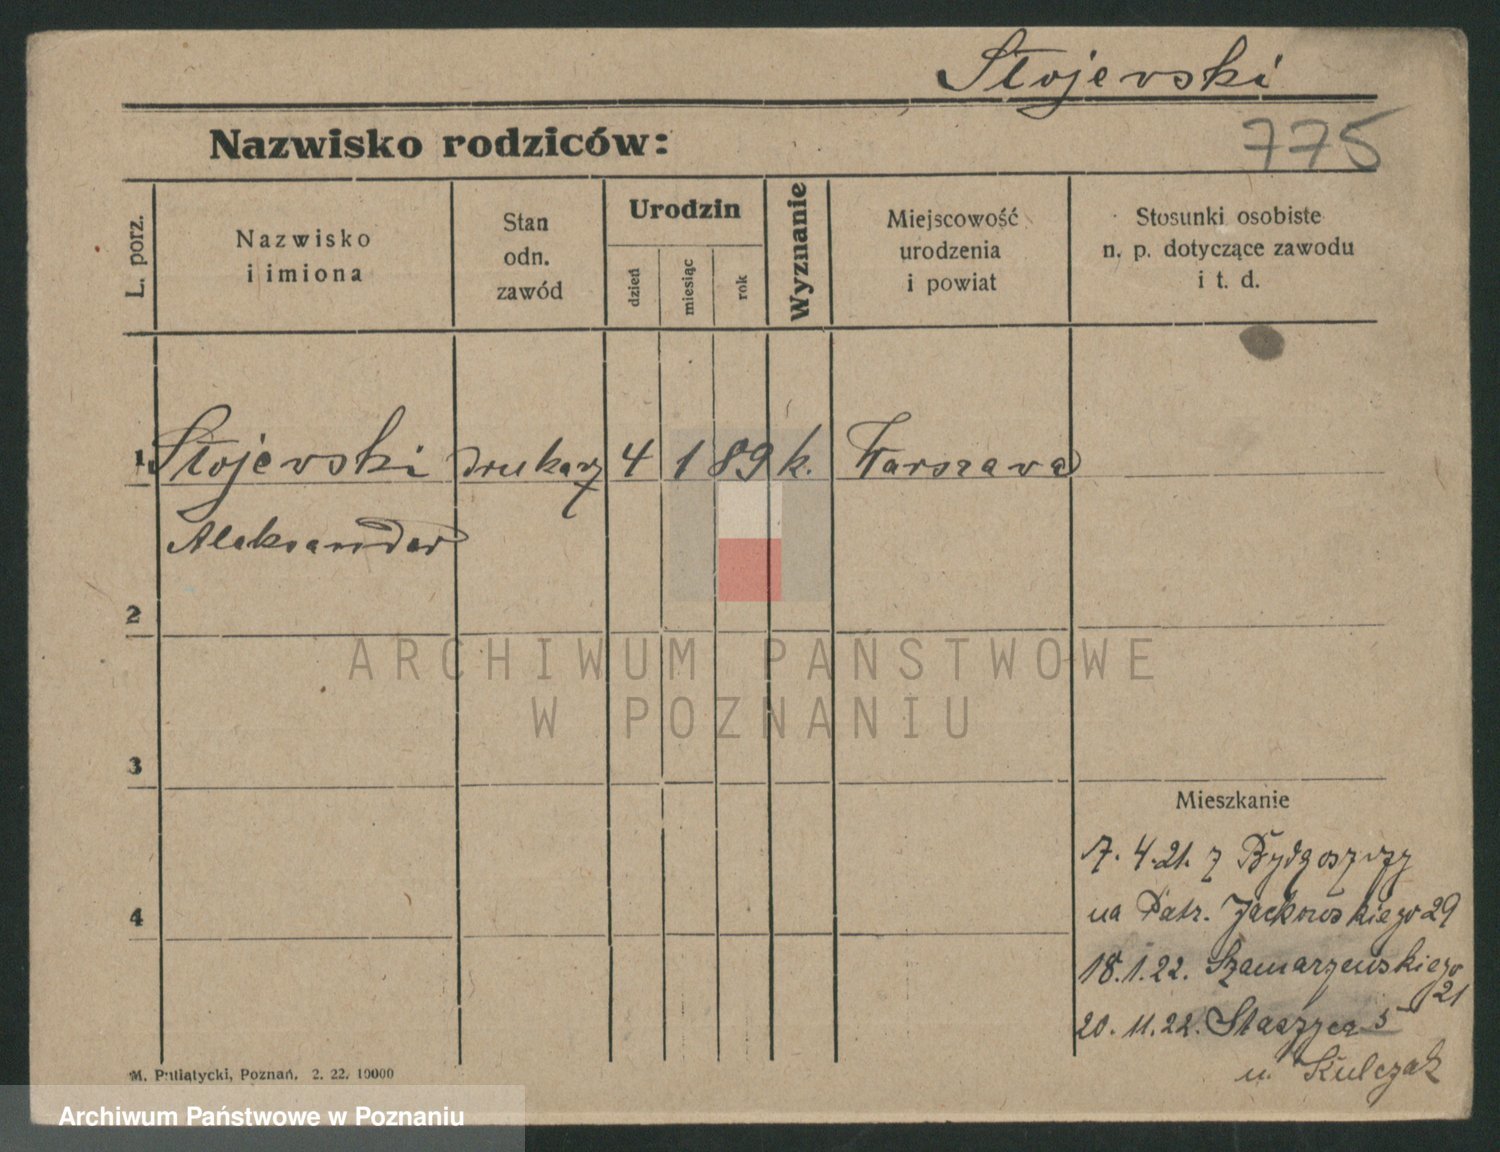 Stojevski
Nazwisko rodziców:
775
L. porz.
Nazwisko
i imiona
Stan
odn.
zawód
Urodzin
dzień
miesiąc
rok
Wyznanie
Miejscowość
urodzenia
i powiat
Stosunki osobiste
n. p. dotyczące zawodu
i t. d.
1 Stojevski drukarz 4 1 89 k. Warszava
Aleksander
2
ARCHIWUM PAŃSTWOWE
W POZNANIU
3
Mieszkanie
7. 4.21. z Bydgoszczy
na Patr. Jackowskiego 29
4
18.1.22. Szamarzewskiego
21
20.11.22. Staszyca 5
u. Kulczak
M. Putiatycki, Poznań, 2. 22. 10000
Archiwum Państwowe w Poznaniu